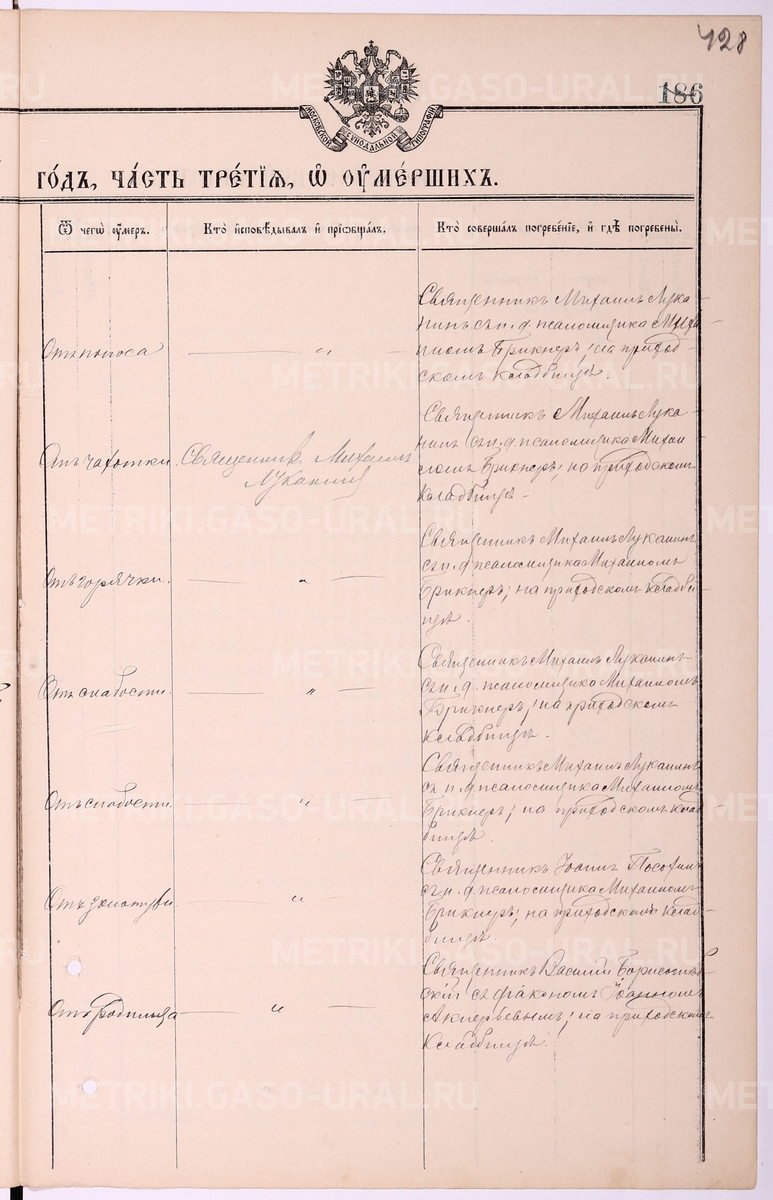 428
186
МОСКОВСКОЙ СѴНОДАЛЬНОЙ ТИПОГРАФІИ
ГОДЪ, ЧАСТЬ ТРЕТІЯ, Ѡ ОУМЕРШИХЪ.
Ѿ чегѡ оумеръ.
Кто исповѣдывалъ и пріобщалъ.
Кто совершалъ погребеніе, и гдѣ погребены.
Отъ поноса
— „ —
Священникъ Михаилъ Лука-
нинъ съ и. д. псаломщика Миха-
иломъ Брикнеръ; на приход-
скомъ кладбищѣ.
Отъ чахотки
Священникъ Михаилъ
Луканинъ
Священникъ Михаилъ Лука-
нинъ съ и. д. псаломщика Михаи-
ломъ Брикнеръ; на приходскомъ
кладбищѣ.
Отъ горячки.
— „ —
Священникъ Михаилъ Луканинъ
съ и. д. псаломщика Михаиломъ
Брикнеръ; на приходскомъ кладби-
щѣ.
Отъ слабости.
— „ —
Священникъ Михаилъ Луканинъ
съ и. д. псаломщика Михаиломъ
Брикнеръ; на приходскомъ
кладбищѣ.
Отъ слабости.
— „ —
Священникъ Михаилъ Луканинъ
съ и. д. псаломщика Михаиломъ
Брикнеръ; на приходскомъ клад-
бищѣ.
Отъ
— „ —
Священникъ Іоаннъ
съ и. д. псаломщика Михаиломъ
Брикнеръ; на приходскомъ клад-
бищѣ.
Отъ родимца
— „ —
Священникъ Василій Борисов-
скій съ діакономъ Іоанномъ
на приходскомъ
кладбищѣ.
METRIKI.GASO-URAL.RU